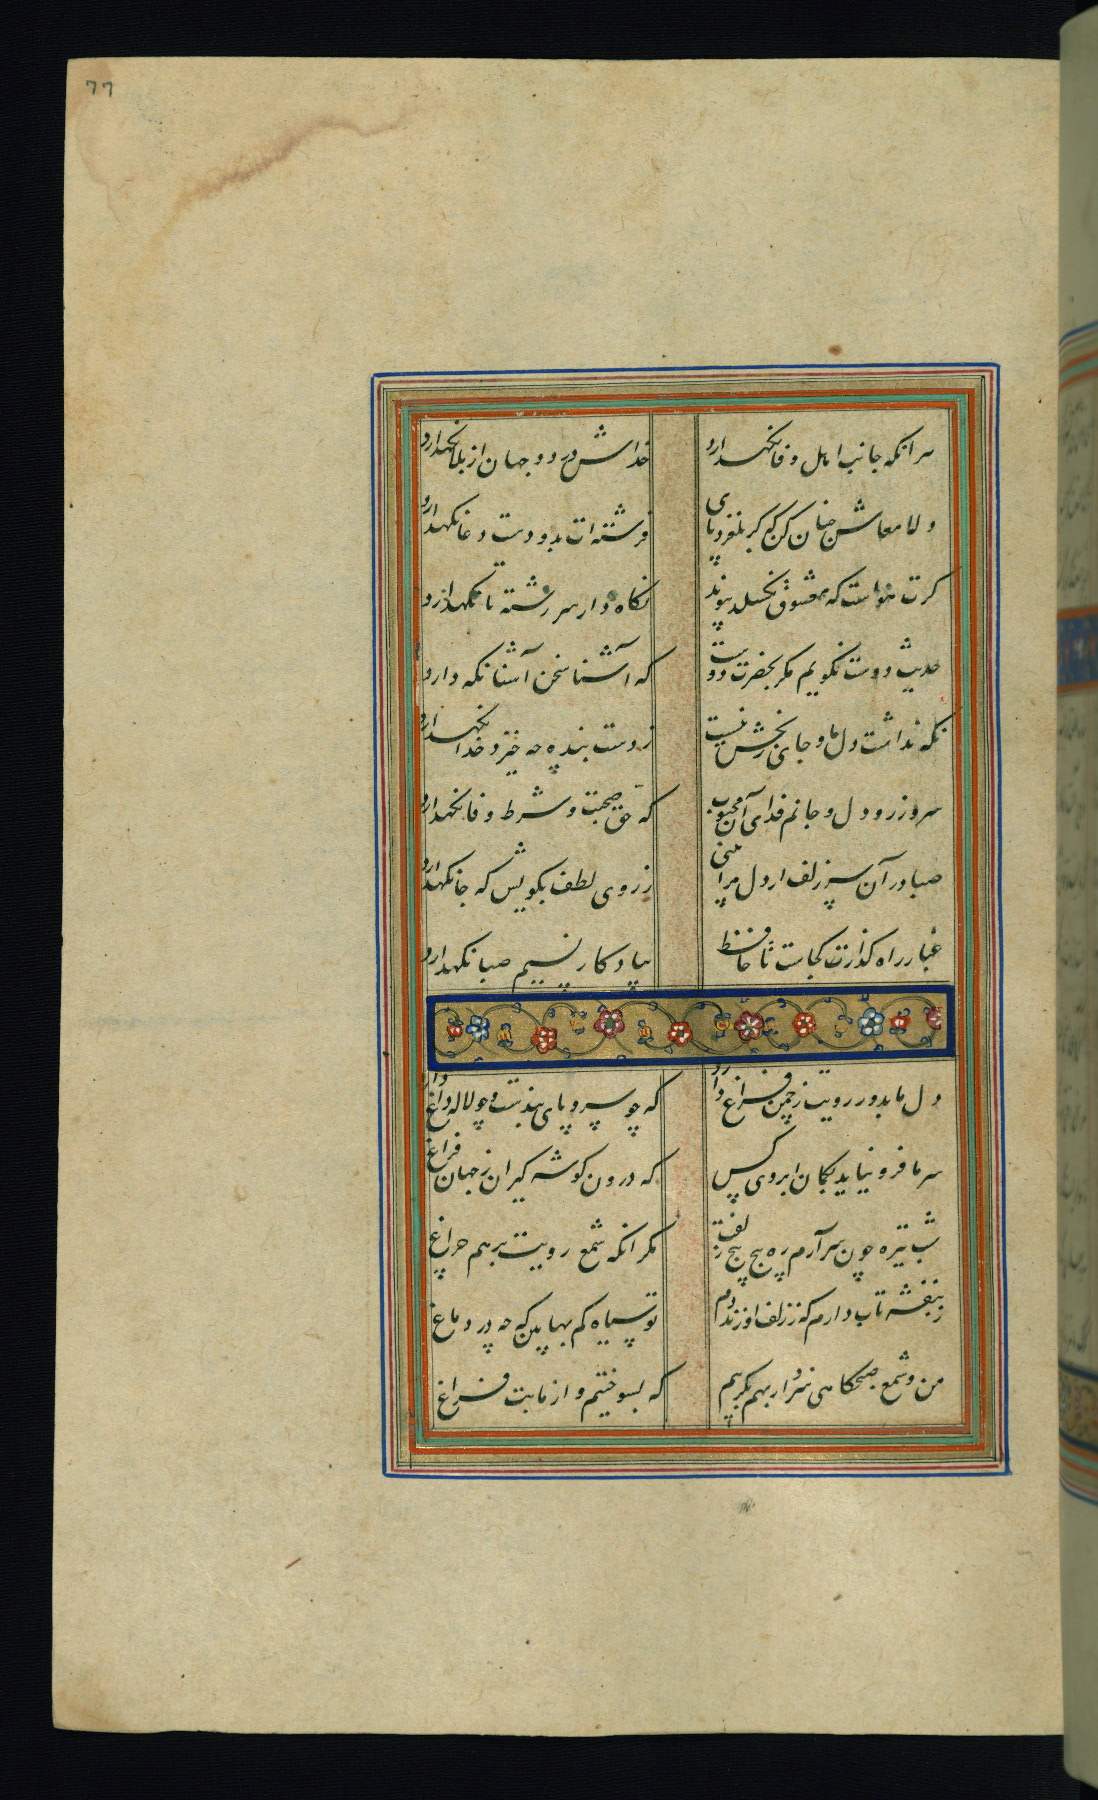 77
هر انکه جانب اهل وفا نکهدارد خداش در دو جهان از بلا نکهدارد
دلا معاش چنان کن که کر بلغزد پای فرشته ات بدو دست دعا نکهدارد
کرت هواست که معشوق نکسلد پیوند نکاه دار سر رشته تا نکهدارد
حدیث دوست نکویم مکر بحضرت دوست که آشنا سخن آشنا نکه دارد
نکه نداشت دل ما و جای رنجش نیست ز دست بنده چه خیزد خدا نکهدارد
سر و زر و دل و جانم فدای آن محبوب که حق صحبت و شرط وفا نکهدارد
صبا در آن سر زلف ار دل مرا بینی ز روی لطف بکویش که جا نکهدارد
غبار راه کذارت کجاست تا حافظ بیادکار نسیم صبا نکهدارد
دل ما بدور رویت ز چمن فراغ دارد که چو سرو پای بندست و چو لاله داغ دارد
سر ما فرو نیاید بکمان ابروی کس که درون کوشه کیران ز جهان فراغ
شب تیره چون سر آرم ره پیچ پیچ زلفت مکر انکه شمع رویت برهم چراغ
ز بنفشه تاب دارم که ز زلف او زند دم تو سیاه کم بها بین که چه در دماغ
من و شمع صبحکاهی سزد ار بهم بکرییم که بسوختیم و از ما بت فراغ